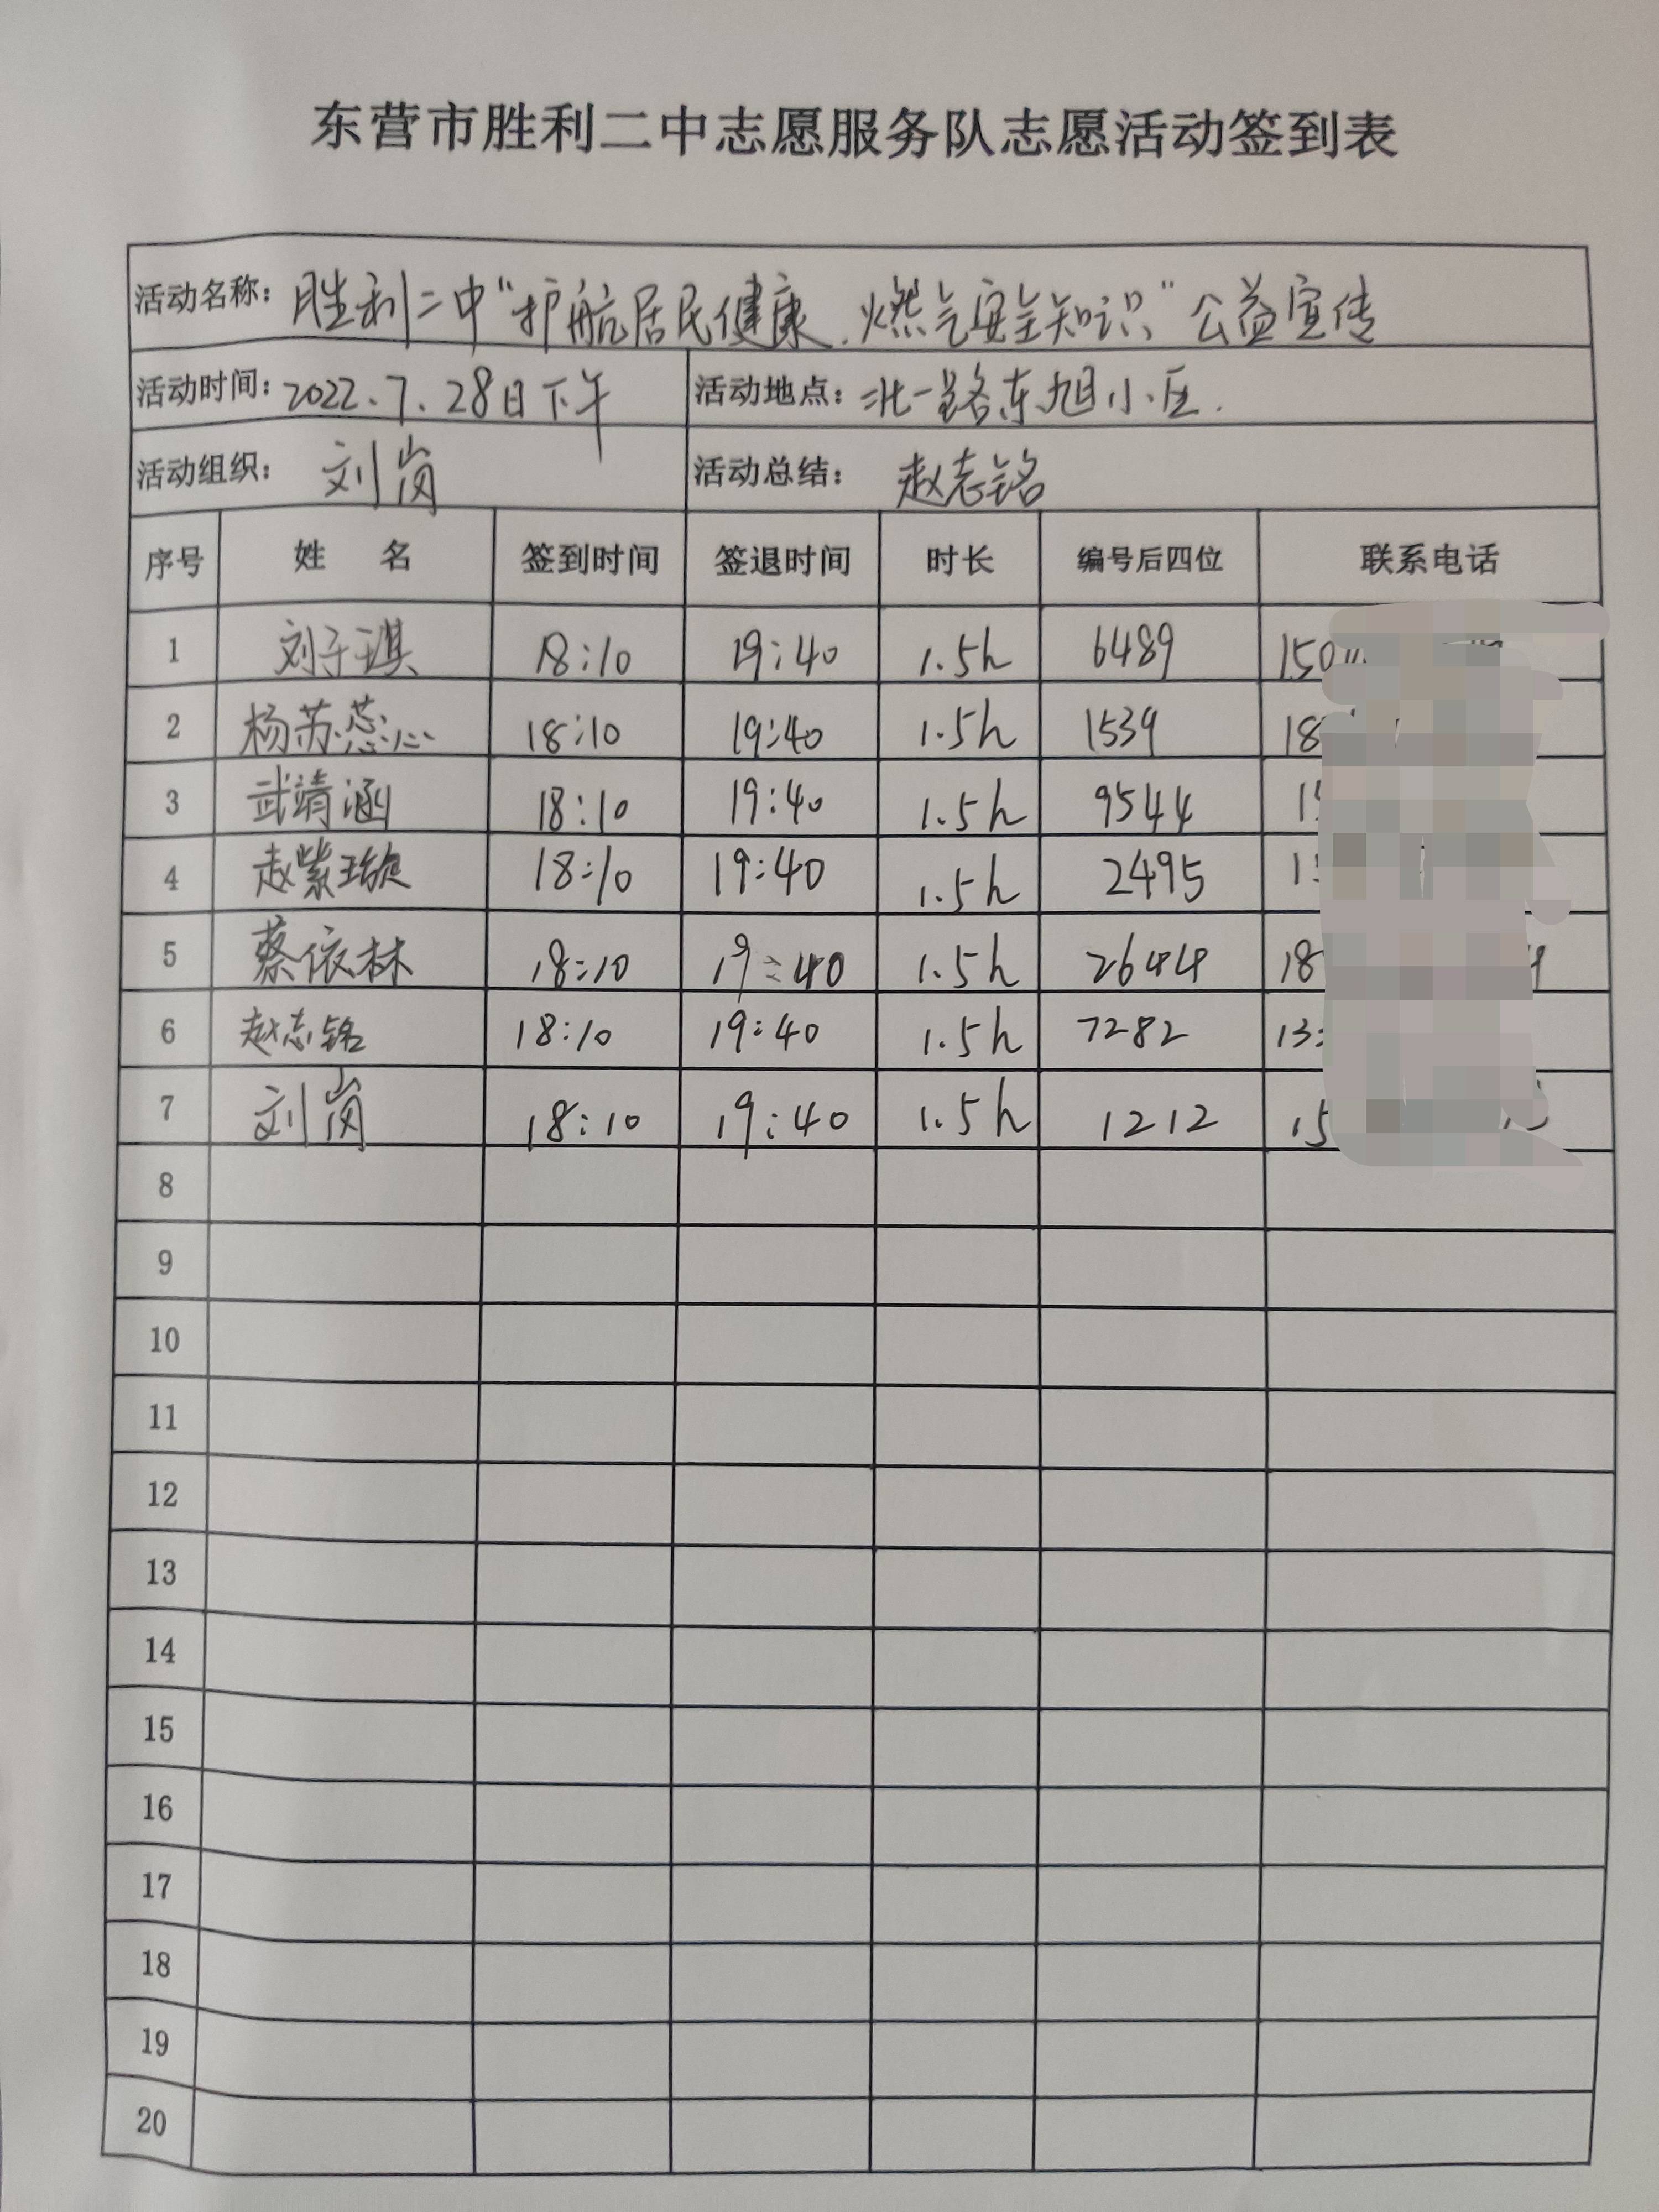 东营市胜利二中志愿服务队志愿活动签到表
活动名称：胜利二中“护航居民健康、燃气安全知识”公益宣传
活动时间：2022.7.28日下午 活动地点：北一路东旭小区.
活动组织：刘岗 活动总结：赵志铭
序号 姓名 签到时间 签退时间 时长 编号后四位 联系电话
1 刘子琪 18:10 19:40 1.5h 6489 150
2 杨苏蕊 18:10 19:40 1.5h 1539 18
3 武靖涵 18:10 19:40 1.5h 9544 15
4 赵紫璇 18:10 19:40 1.5h 2495 1
5 蔡依林 18:10 19:40 1.5h 2644 18
6 赵志铭 18:10 19:40 1.5h 7282 13
7 刘岗 18:10 19:40 1.5h 1212 15
8
9
10
11
12
13
14
15
16
17
18
19
20